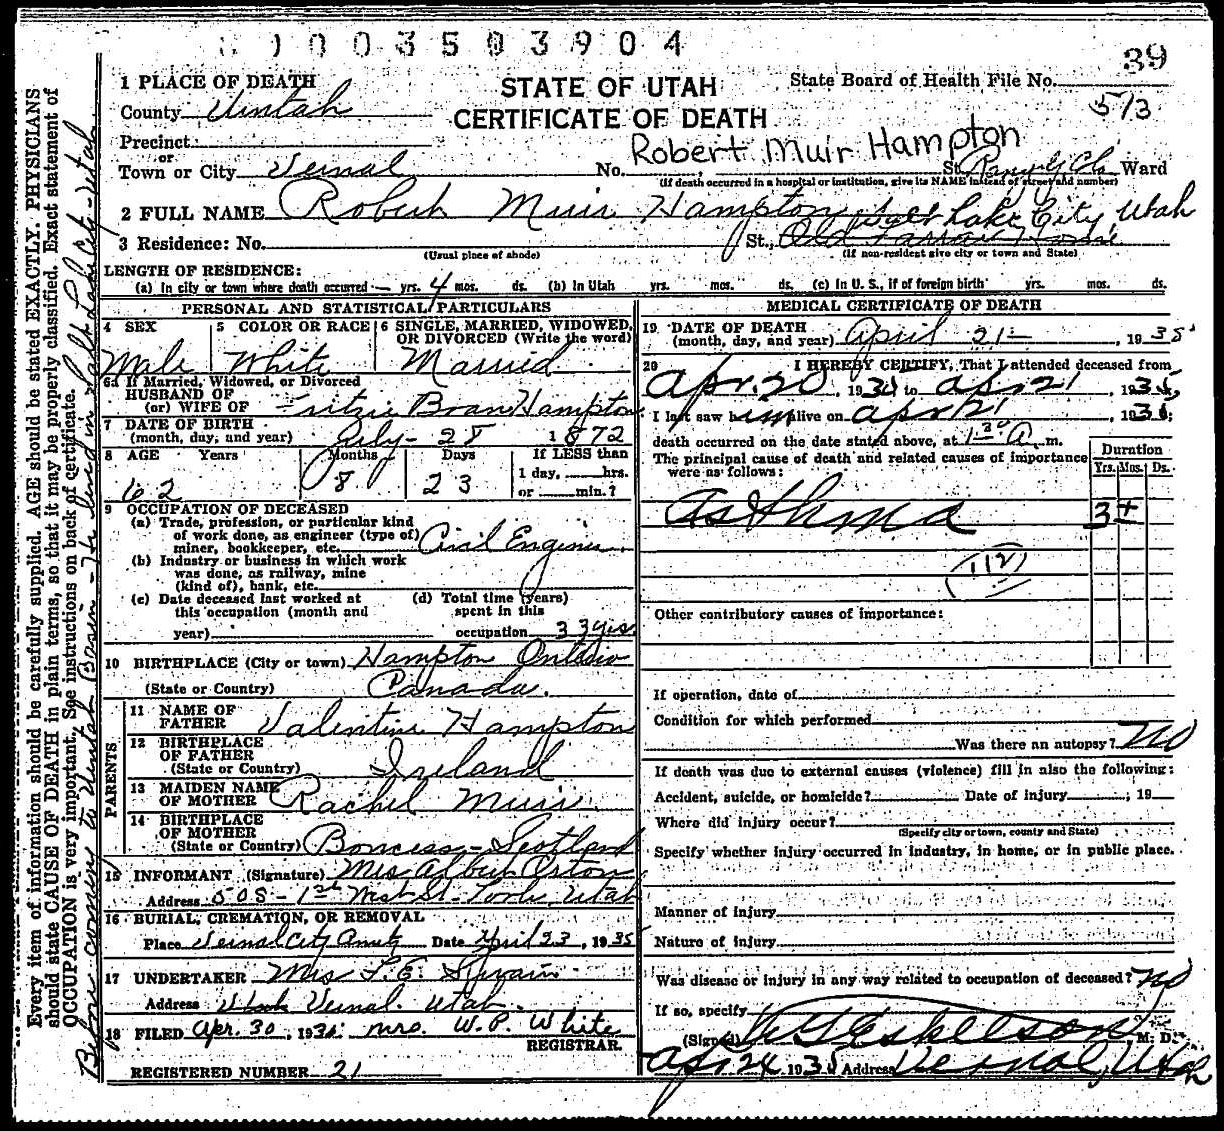 0003503904
39
1 PLACE OF DEATH
STATE OF UTAH
State Board of Health File No.
513
County Uintah
CERTIFICATE OF DEATH
Precinct
Robert Muir Hampton
or
Town or City Vernal No. St. Ward
(If death occurred in a hospital or institution, give its NAME instead of street and number)
2 FULL NAME Robert Muir Hampton
Salt Lake City, Utah
3 Residence: No. St., Old Home
(Usual place of abode) (If non-resident give city or town and State)
LENGTH OF RESIDENCE:
(a) In city or town where death occurred — yrs. 4 mos. ds. (b) In Utah yrs. mos. ds. (c) In U. S., if of foreign birth yrs. mos. ds.
PERSONAL AND STATISTICAL PARTICULARS
4 SEX 5 COLOR OR RACE 6 SINGLE, MARRIED, WIDOWED,
OR DIVORCED (Write the word)
Male White Married
6a If Married, Widowed, or Divorced
HUSBAND OF
(or) WIFE OF Fritzie Hampton
7 DATE OF BIRTH
(month, day, and year) July - 28 1872
8 AGE Years Months Days If LESS than
1 day, hrs.
62 8 23 or min.?
9 OCCUPATION OF DECEASED
(a) Trade, profession, or particular kind
of work done, as engineer (type of)
miner, bookkeeper, etc. Civil Engineer
(b) Industry or business in which work
was done, as railway, mine
(kind of), bank, etc.
(c) Date deceased last worked at (d) Total time (years)
this occupation (month and spent in this
year) occupation 33 yrs.
10 BIRTHPLACE (City or town) Hampton Ontario
(State or Country) Canada.
PARENTS
11 NAME OF
FATHER Valentine Hampton
12 BIRTHPLACE
OF FATHER
(State or Country) Ireland
13 MAIDEN NAME
OF MOTHER Rachel Muir
14 BIRTHPLACE
OF MOTHER
(State or Country) Boncess - Scotland
15 INFORMANT (Signature) Mrs Orton
Address 505 - 1st West St. Utah
16 BURIAL, CREMATION, OR REMOVAL
Place Vernal City Date April 23, 1935
17 UNDERTAKER Mrs Swain
Address Vernal. Utah.
18 FILED Apr. 30, 193 Mrs. W. P. White
REGISTRAR.
REGISTERED NUMBER 21
MEDICAL CERTIFICATE OF DEATH
19 DATE OF DEATH
(month, day, and year) April 21 —, 1935
20 I HEREBY CERTIFY, That I attended deceased from
Apr. 20, 193 to apr 21, 1935,
I last saw him alive on apr 21, 1935;
death occurred on the date stated above, at 1 30 A m.
The principal cause of death and related causes of importance
were as follows:
Duration
Yrs. Mos. Ds.
Asthma 3 +
(112)
Other contributory causes of importance:
If operation, date of
Condition for which performed
Was there an autopsy? No
If death was due to external causes (violence) fill in also the following:
Accident, suicide, or homicide? Date of injury , 19
Where did injury occur?
(Specify city or town, county and State)
Specify whether injury occurred in industry, in home, or in public place.
Manner of injury
Nature of injury
Was disease or injury in any way related to occupation of deceased? No
If so, specify
(Signed) Eskelson, M. D.
Apr 24 1935 Address Vernal, Utah
Every item of information should be carefully supplied. AGE should be stated EXACTLY. PHYSICIANS
should state CAUSE OF DEATH in plain terms, so that it may be properly classified. Exact statement of
OCCUPATION is very important. See instructions on back of certificate.
Before coming to Uintah Basin - He lived in Salt Lake City - Utah